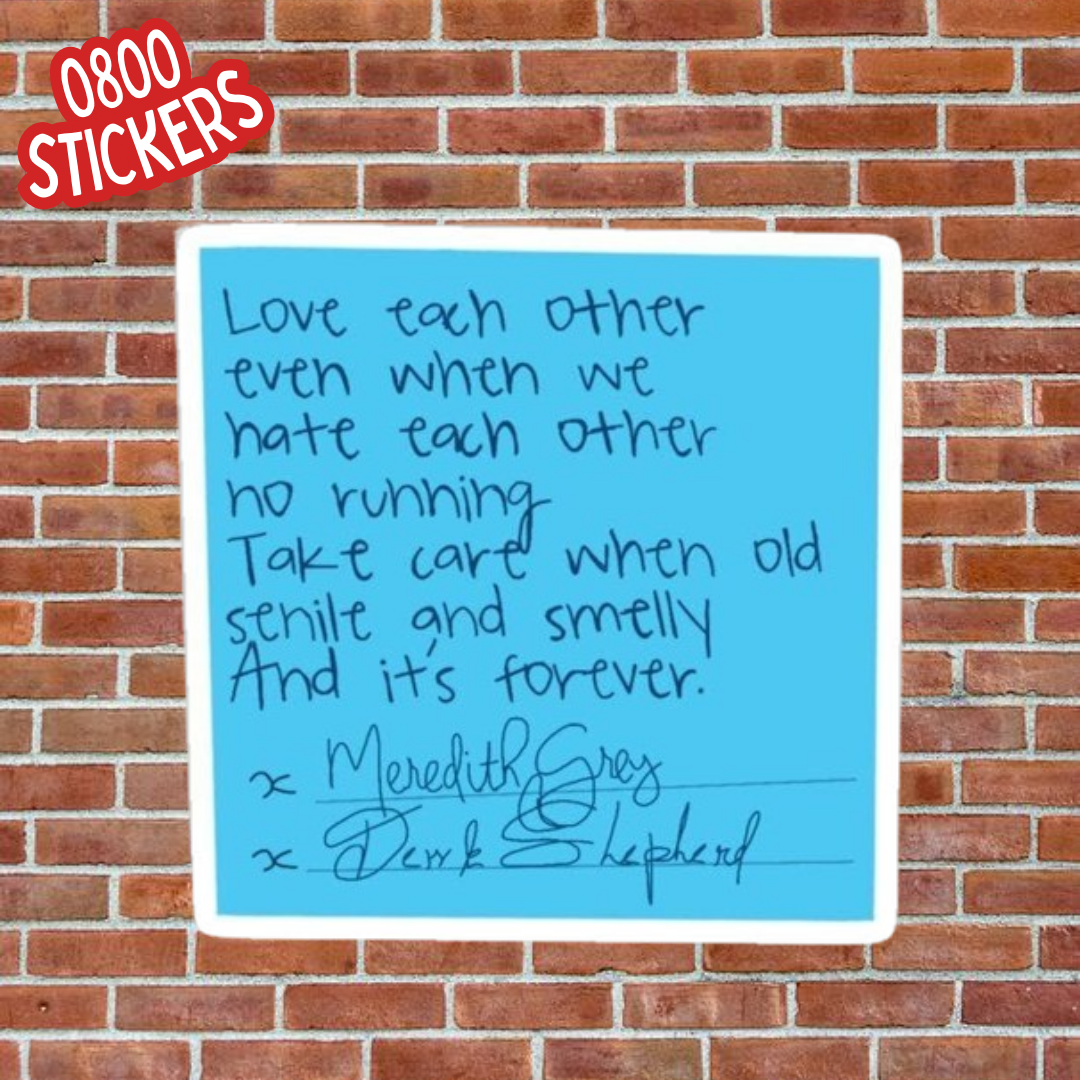 0800
STICKERS
Love each other
even when we
hate each other
no running
Take care when old
senile and smelly
And it's forever.
x Meredith Grey
x Derek Shepherd